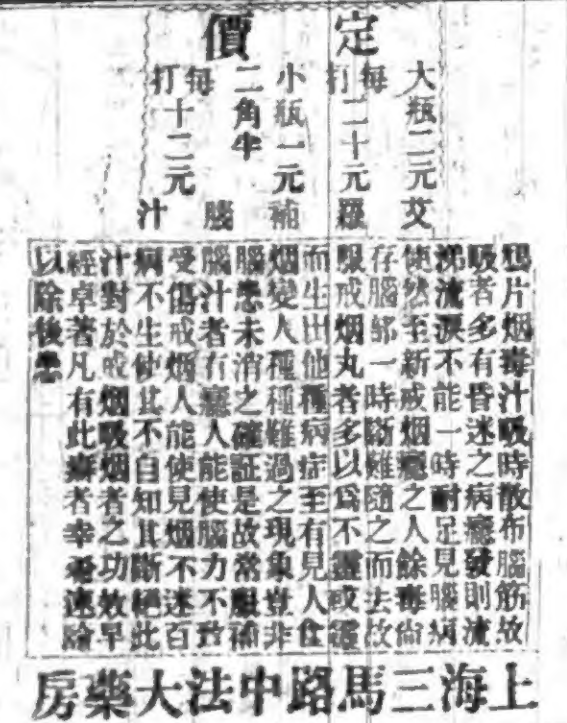 定價
大瓶二元
每打二十元
小瓶一元
二角半
每打十二元
艾羅補腦汁
鴉片烟毒汁吸時散布腦筋故
吸者多有昏迷之病癮發則流
涕流淚不能一時耐足見腦病
使然至新戒烟癮之人餘毒尚
存腦部一時斷難隨之而去故
服戒烟丸者多以爲不靈或靈
而生出他種病症至有見人食
烟變人種種難過之現象豈非
腦患未消之確証是故常服補
腦汁者有癮人能使腦力不致
受傷戒烟人能使見烟不迷百
病不生使其不自知其斷絕此
汁對於戒烟吸烟者之功效早
經卓著凡有此癖者幸希速
以除後患
上海三馬路中法大藥房